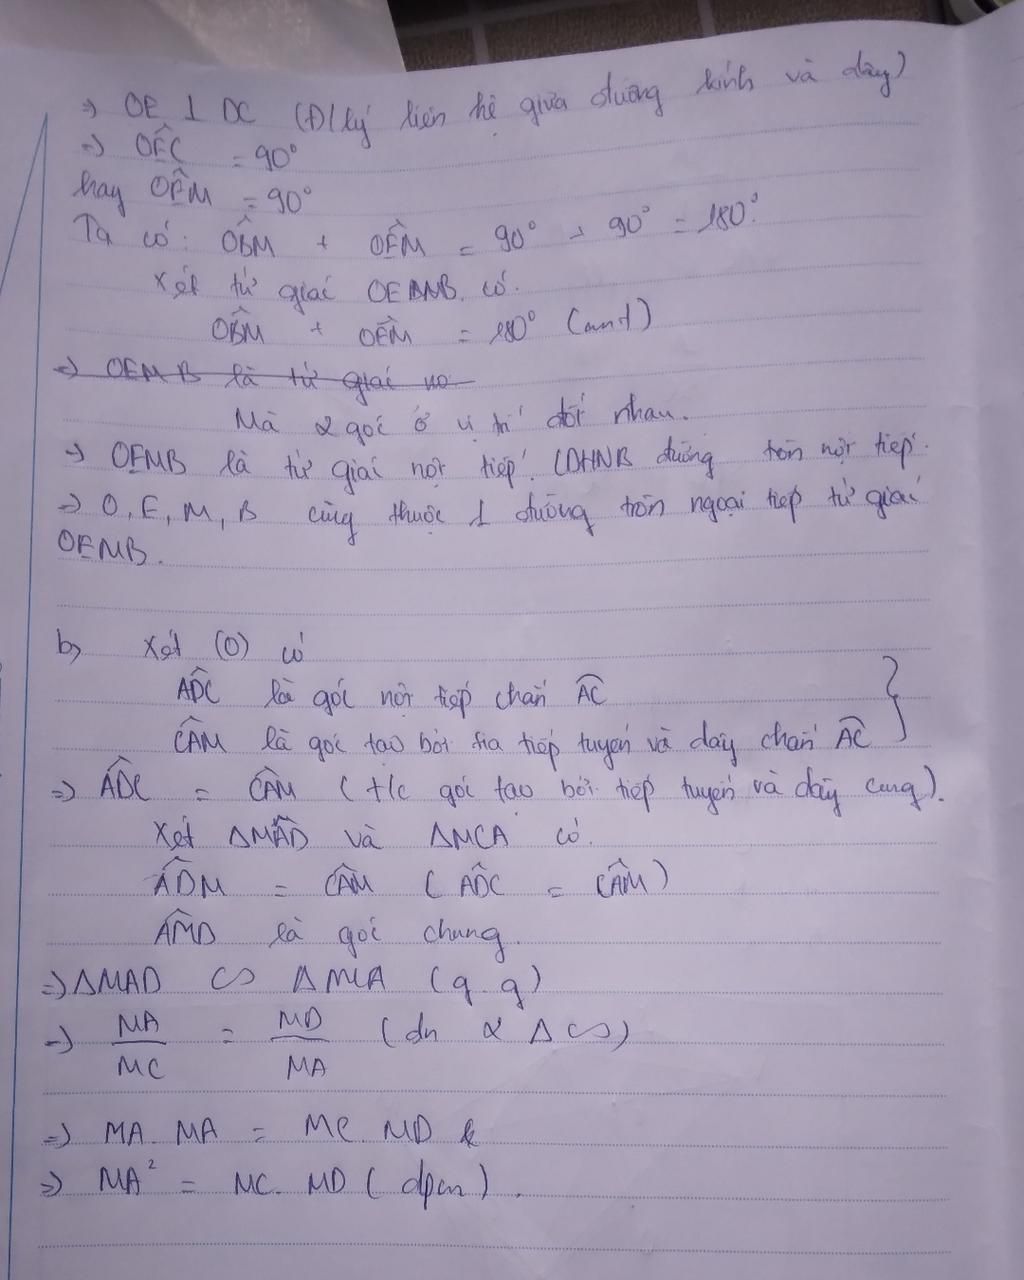 => OE ⊥ DC (Đ/lý liên hệ giữa đường kính và dây)
=> OÊC = 90°
hay OÊM = 90°
Ta có: OB̂M + OÊM = 90° + 90° = 180°.
Xét tứ giác OEMB có.
OB̂M + OÊM = 180° (cmt)
=> OEMB là tứ giác no
Mà 2 góc ở vị trí đối nhau.
=> OEMB là tứ giác nội tiếp. (DHNB đường tròn nội tiếp.
=> O, E, M, B cùng thuộc 1 đường tròn ngoại tiếp tứ giác
OEMB.
b, Xét (O) có
AD̂C là góc nội tiếp chắn AC
CÂM là góc tạo bởi tia tiếp tuyến và dây chắn AC
=> AD̂C = CÂM (t/c góc tạo bởi tiếp tuyến và dây cung).
Xét ΔMAD và ΔMCA có.
AD̂M = CÂM (AD̂C = CÂM)
AM̂D là góc chung.
=> ΔMAD ∽ ΔMCA (g.g)
=> MA/MC = MD/MA (dn 2 Δ ∽)
=> MA. MA = MC. MD
=> MA² = MC. MD (dpcm).